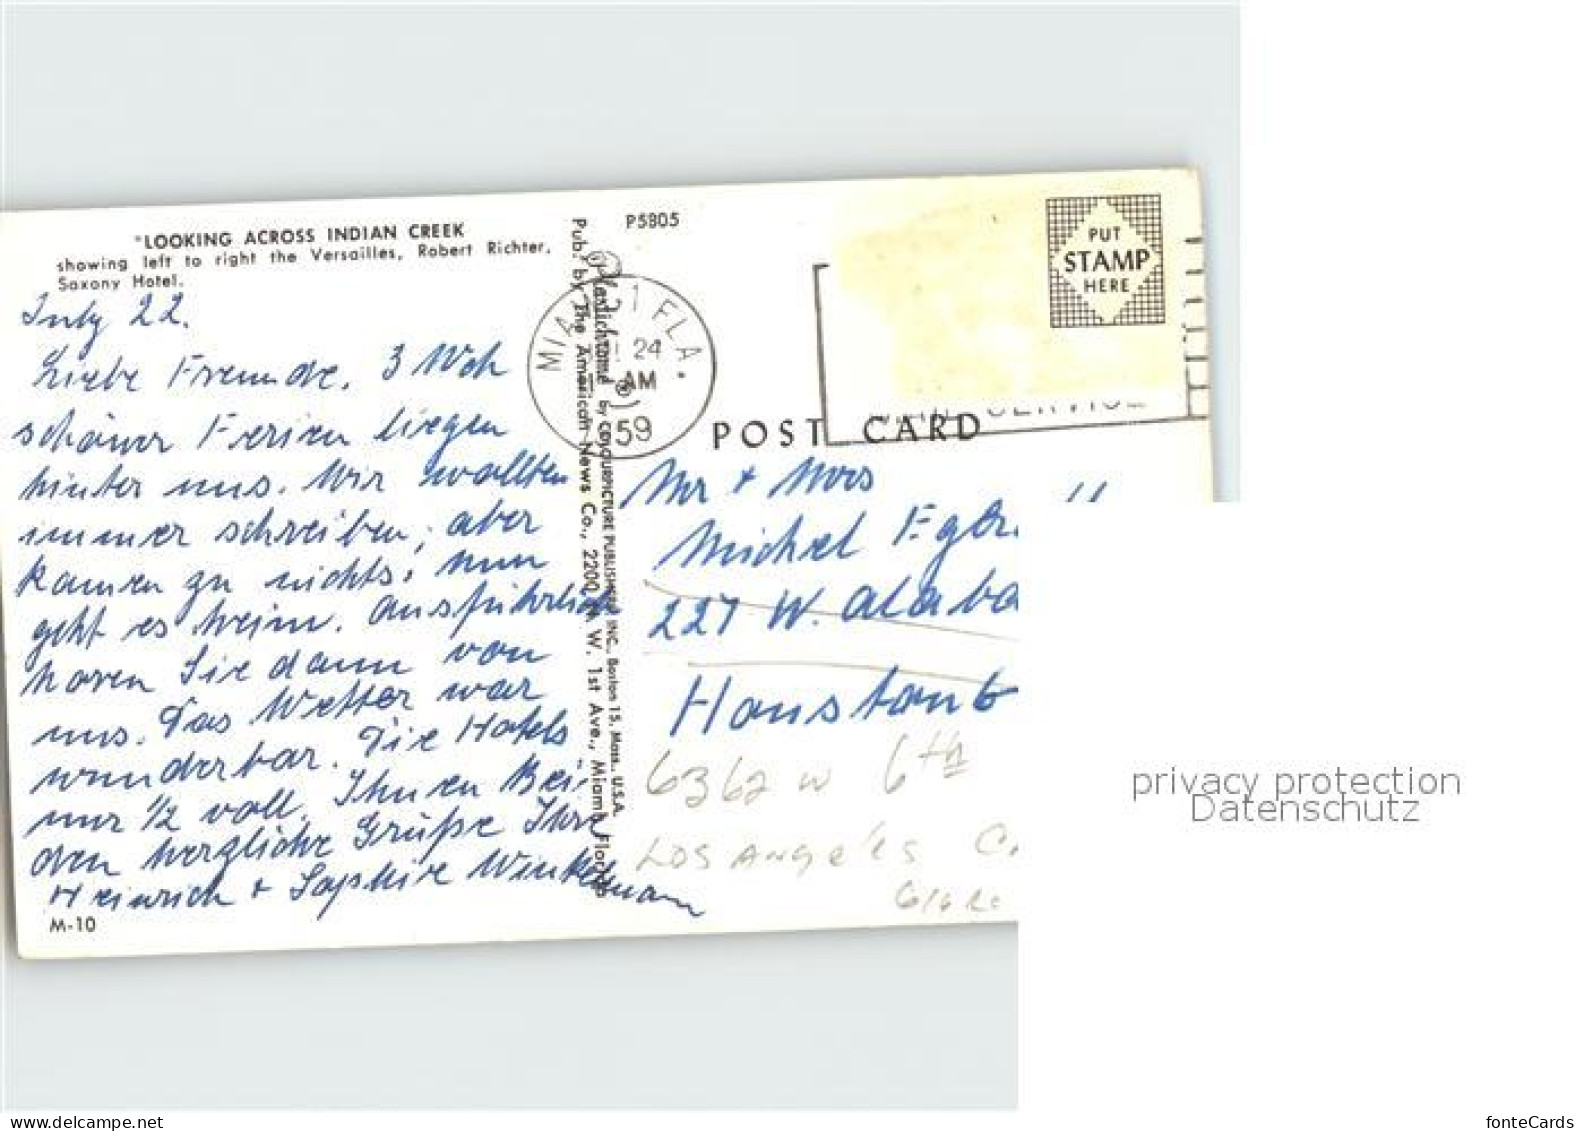 "LOOKING ACROSS INDIAN CREEK
showing left to right the Versailles, Robert Richter,
Saxony Hotel.
July 22.
Liebe Freunde. 3 Woch
schöner Ferien liegen
hinter uns. Wir wollten
immer schreiben, aber
kamen zu nichts. nun
geht es heim. ausführlich
hören Sie dann von
uns. Das Wetter war
wunderbar. Die Hotels
nur 1/2 voll. Ihnen Bei-
den herzliche Grüße Ihre
Heinrich + Sophie Winkelmann
M-10
Plastichrome ® by COLOURPICTURE PUBLISHERS, INC., Boston 15, Mass., U.S.A.
Pub. by The American News Co., 2200 N. W. 1st Ave., Miami, Florida
P5805
PUT
STAMP
HERE
FLA.
24
AM
59
POST CARD
Mr + Mrs
Michel
227 W. Alaba
6362 W 6th
Los Angeles C
privacy protection
Datenschutz
www.delcampe.net
fonteCards